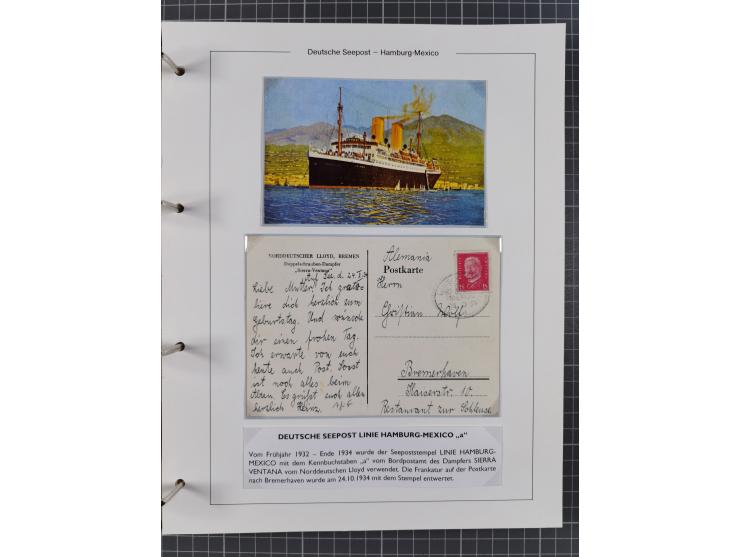 Deutsche Seepost – Hamburg-Mexico
NORDDEUTSCHER LLOYD, BREMEN
Doppelschrauben-Dampfer
„Sierra Ventana"
Auf See. d. 24.
Liebe Mutter! Ich gratu-
liere dich herzlich zum
Geburtstag. Und wünsche
dir einen frohen Tag.
Ich erwarte von euch
heute auch Post. Sonst
ist noch alles beim
Alten. Es grüßt euch allen
herzlich Heinz.
Alemania
Postkarte
Herrn
Christian Wolf
Bremerhaven
Kaiserstr. 10.
Restaurant zur Schleuse
DEUTSCHE SEEPOST LINIE HAMBURG-MEXICO „a"
Vom Frühjahr 1932 – Ende 1934 wurde der Seepoststempel LINIE HAMBURG-
MEXICO mit dem Kennbuchstaben „a" vom Bordpostamt des Dampfers SIERRA
VENTANA vom Norddeutschen Lloyd verwendet. Die Frankatur auf der Postkarte
nach Bremerhaven wurde am 24.10.1934 mit dem Stempel entwertet.